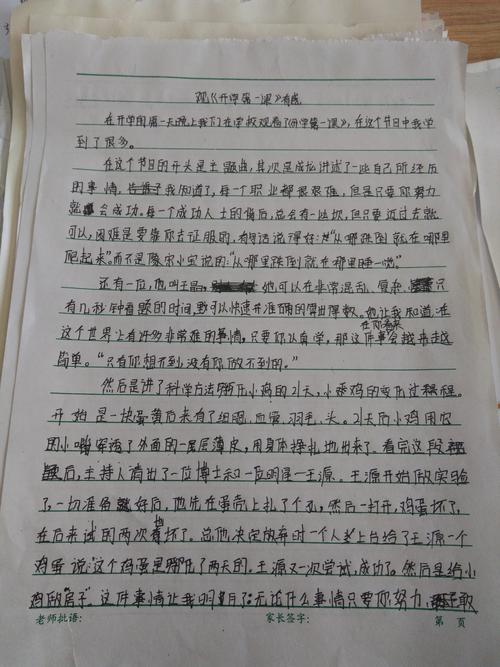 观《开学第一课》有感
在开学的第一天晚上我们在学校观看了《开学第一课》，在这个节目中我学
到了很多。
在这个节目的开头是主题曲，其次是成龙讲述了一些自己所经历
的事情，我知道了，每一个职业都很艰难，但是只要你努力
就会成功。每一个成功人士的背后，总会有一些坎，但只要迈过去就
可以，困难是要靠你去征服的，有句话说得好："从哪跌倒就在哪里
爬起来"。而不是像宋小宝说的："从哪里跌倒就在那里睡一啲"。
还有一位，也叫王，他可以在非常混乱、复杂，只
有几秒钟看题的时间，就可以快速并准确的算出得数。他让我知道，在
这个世界上有许多非常难的事情，只要你认自学，那这件事在你看来会越来越
简单。"只有你想不到，没有你做不到的。"
然后是讲了科学方法孵化小鸡的21天，小乖鸡的变化过程程。
开始是一块蛋黄后来有了细胞、血管、羽毛、头。21天后小鸡用它
的小嘴穿透了外面的一层层薄皮，用身体挣扎地出来了。看完这段视
频后，主持人请出了一位博士和一位明星—王源。王源开始做实验
了，一切准备就好后，他先在蛋壳上扎了个孔，然后一打开，鸡蛋坏了，
在后来试的两次都坏了。当他决定放弃时一个人老上台给了王源一个
鸡蛋说：这个鸡蛋是孵化了两天的。王源又一次尝试，成功了。然后是给小
鸡做"房子"。这件事情让我明白了：无论什么事情只要你努力，敢
老师批语： 家长签字： 第 页